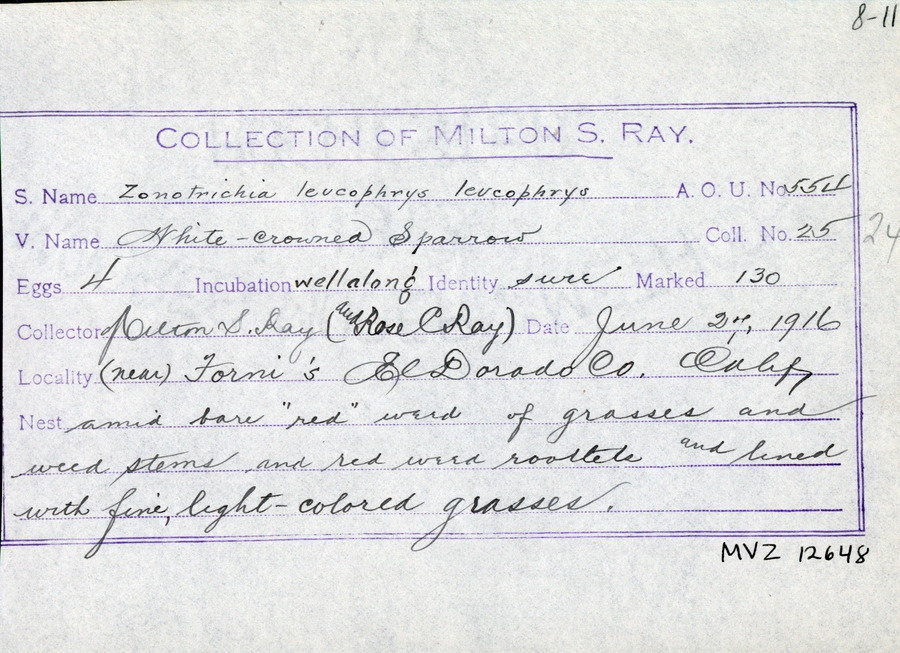 8-11
COLLECTION OF MILTON S. RAY.
S. Name Zonotrichia leucophrys leucophrys A. O. U. No. 554
V. Name White-crowned Sparrow Coll. No. 25
24
Eggs 4 Incubation well along Identity sure Marked 130
Collector Milton S. Ray (and Rose C Ray) Date June 27, 1916
Locality (near) Forni's El Dorado Co. Calif
Nest amid bare "red" weed of grasses and
weed stems and red weed rootlets and lined
with fine, light-colored grasses.
MVZ 12648